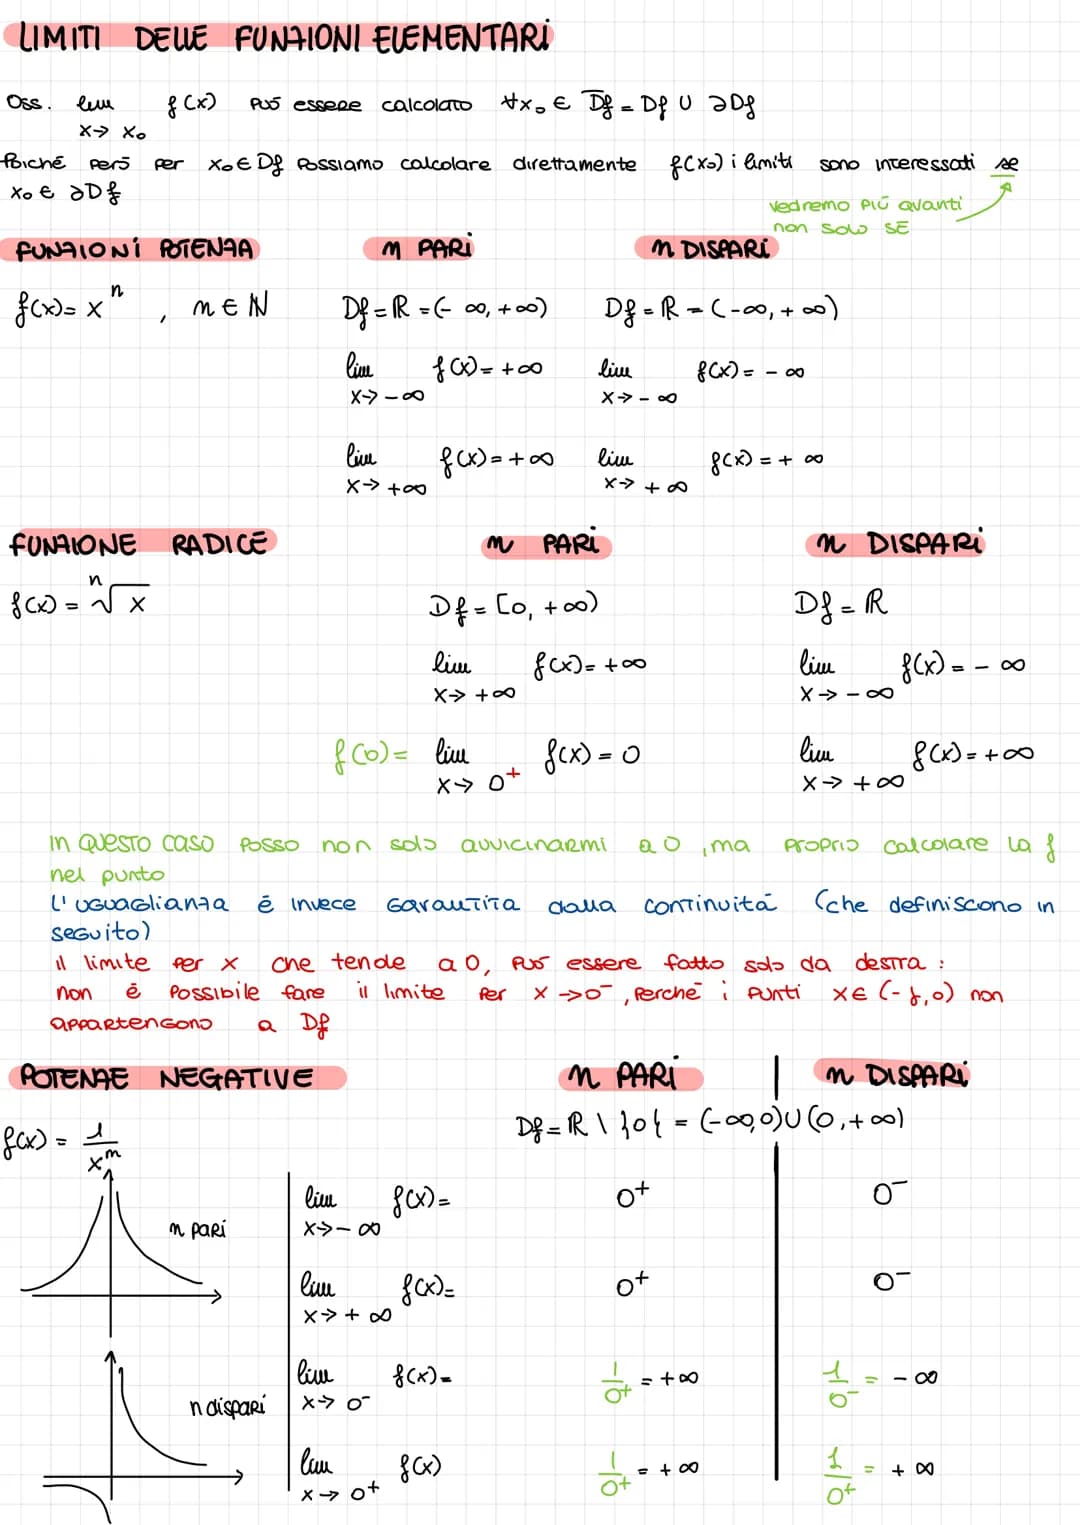 LIMITI DELLE FUNZIONI ELEMENTARI
Oss. lim f(x) può essere calcolato ∀x₀ ∈ D̅f = Df ∪ ∂Df
x→ x₀
Poiché però per x₀∈ Df possiamo calcolare direttamente f(x₀) i limiti sono interessati se
x₀ ∈ ∂Df
vedremo più avanti
non solo SE
FUNZIONI POTENZA n PARI n DISPARI
f(x)= xⁿ , n∈ℕ Df=ℝ =(- ∞, +∞) Df=ℝ = (-∞, + ∞)
lim f(x)= +∞ lim f(x)= - ∞
x→ -∞ x→ - ∞
lim f(x)= +∞ lim f(x) = + ∞
x→ +∞ x→ + ∞
FUNZIONE RADICE n PARI n DISPARI
f(x) = ⁿ√x Df = [0, +∞) Df = ℝ
lim f(x)= +∞ lim f(x) = - ∞
x→ +∞ x→ - ∞
f(0)= lim f(x) = 0 lim f(x)= +∞
x→ 0⁺ x→ +∞
In questo caso posso non solo avvicinarmi a 0 , ma proprio calcolare la f
nel punto
L'uguaglianza é invece garantita dalla continuitá (che definiscono in
seguito)
il limite per x che tende a 0, può essere fatto solo da destra :
non é possibile fare il limite per x →0⁻ , perché i punti x∈ (-δ,0) non
appartengono a Df
POTENZE NEGATIVE n PARI n DISPARI
f(x) = 1/xⁿ Df = ℝ \ }0{ = (-∞,0)∪(0,+∞)
n pari
lim f(x)= 0⁺ 0⁻
x→ - ∞
lim f(x)= 0⁺ 0⁻
x→ + ∞
n dispari
lim f(x)= 1/0⁺ = +∞ 1/0⁻ = - ∞
x→ 0⁻
lim f(x) 1/0⁺ = + ∞ 1/0⁺ = + ∞
x→ 0⁺